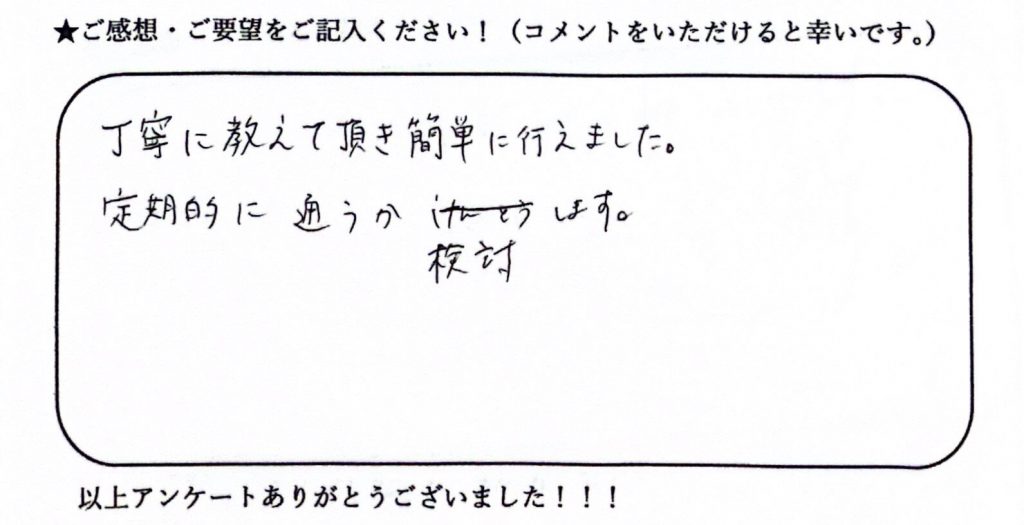 ★ご感想・ご要望をご記入ください！（コメントをいただけると幸いです。）
丁寧に教えて頂き簡単に行えました。
定期的に通うかけんとうします。
検討
以上アンケートありがとうございました！！！